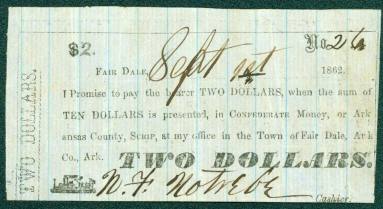 $2. No. 26
FAIR DALE, Sept 1st 1862.
I Promise to pay the bearer TWO DOLLARS, when the sum of
TEN DOLLARS is presented, in CONFEDERATE Money, or Ark
ansas County, SCRIP, at my office in the Town of Fair Dale, Ark
Co., Ark. TWO DOLLARS.
N. F. Notrebe
Cashier.
TWO DOLLARS.